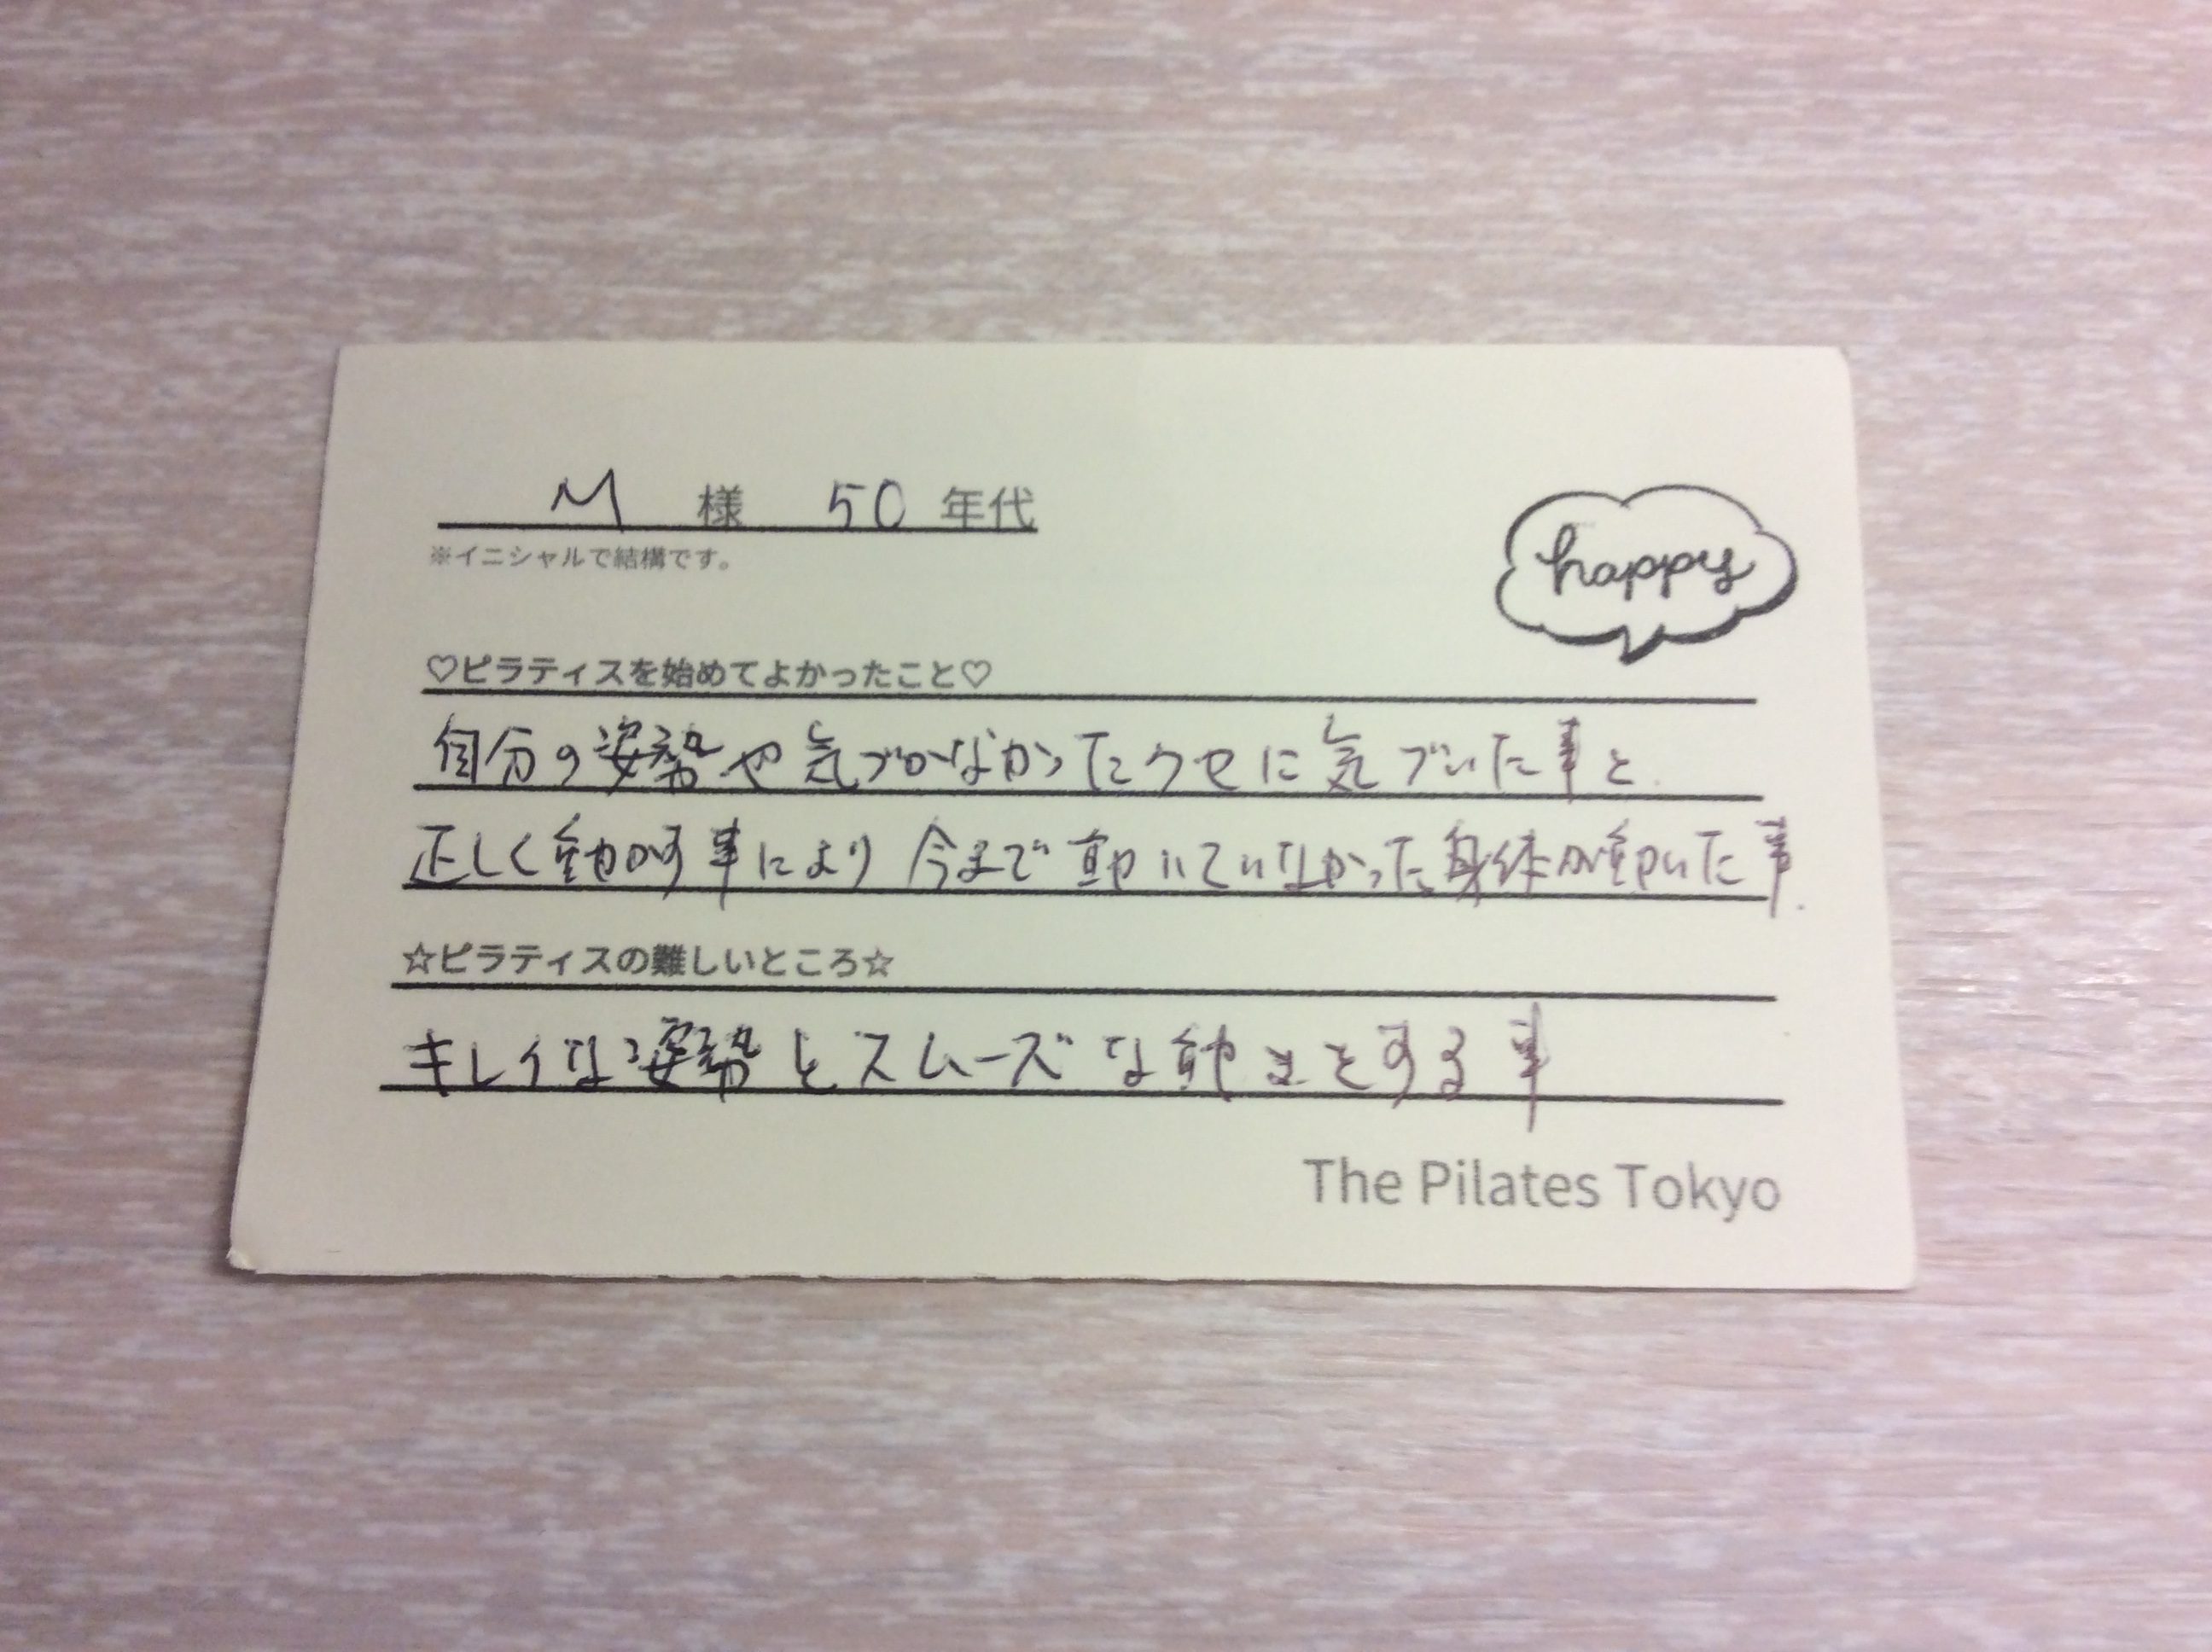 M 様 50 年代
※イニシャルで結構です。
happy
♡ピラティスを始めてよかったこと♡
自分の姿勢や気づかなかったクセに気づいた事と
正しく動かす事により今まで動いていなかった身体が動いた事.
☆ピラティスの難しいところ☆
キレイな姿勢とスムーズな動きをする事
The Pilates Tokyo